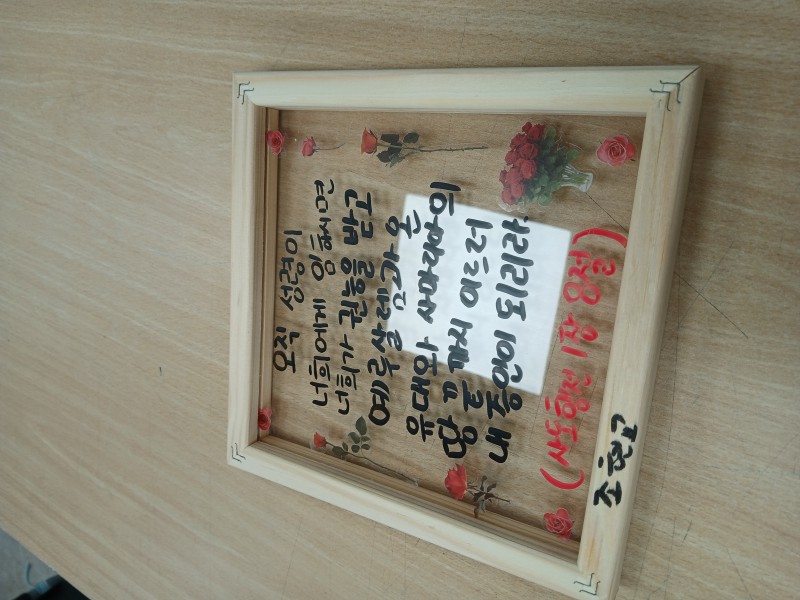 오직 성령이
너희에게 임하시면
너희가 권능을 받고
예루살렘과 온
유대와 사마리아와
땅 끝까지 이르러
내 증인이 되리라
(사도행전 1장 8절)
조현고